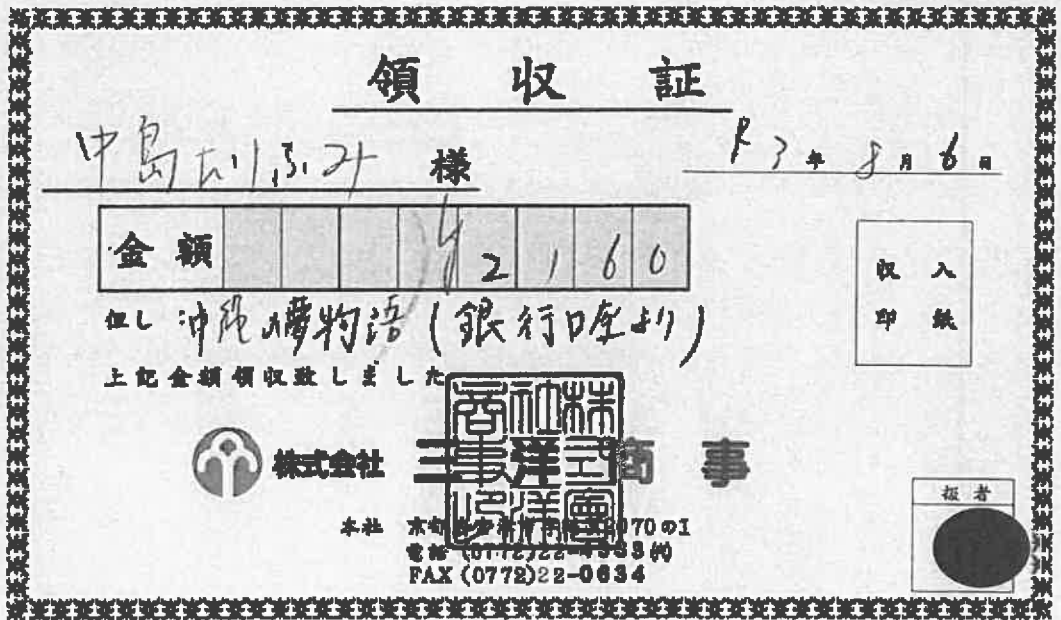 領収証
中島たりふみ 様
R3年8月6日
金額 ¥2160
収入
印紙
但し 沖縄夢物語(銀行口座より)
上記金額領収致しました
株式会社 三洋商事
扱者
本社 京都 070の1
電話 (0772)22-0333㈹
FAX (0772)22-0634